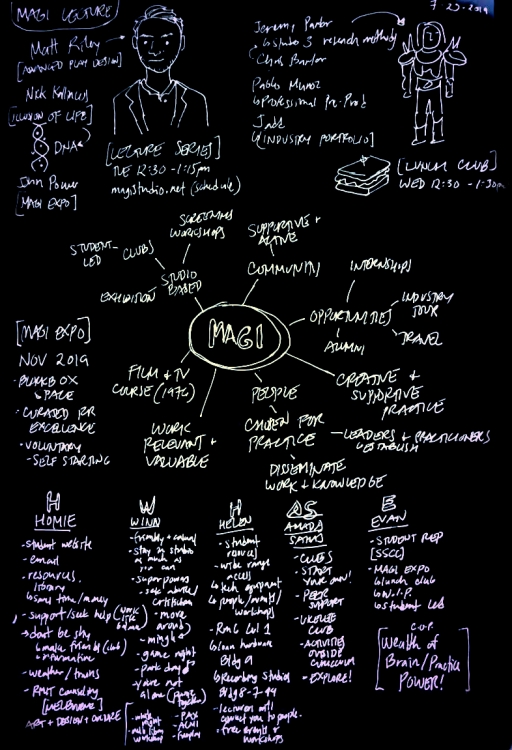 MAGI LECTURE
Matt Riley
[ADVANCED PLAY DESIGN]
Nick
[ILLUSION OF LIFE]
DNA
John Power
[MAGI EXPO]
[LECTURE SERIES]
TUE 12:30 - 1:15pm
magistudio.net (schedule)
Jeremy Parker
↳ studio 3 research methods
Chris Barker
Pablo Munoz
↳ Professional Pre-Prod
Jade
↳ [INDUSTRY PORTFOLIO]
[LUNCH CLUB]
WED 12:30 - 1:30pm
MAGI
SCREENINGS
WORKSHOPS
STUDENT-
LED
CLUBS
STUDIO
BASED
EXHIBITION
SUPPORTIVE +
ACTIVE
COMMUNITY
INTERNSHIPS
OPPORTUNITIES
INDUSTRY
TOUR
TRAVEL
ALUMNI
CREATIVE +
SUPPORTIVE
PRACTICE
PEOPLE
CHOSEN FOR
PRACTICE
LEADERS + PRACTITIONERS
DISSEMINATE
WORK + KNOWLEDGE
FILM + TV
COURSE (1976)
WORK
RELEVANT +
VALUABLE
[MAGI EXPO]
NOV 2019
- BLACKBOX
↳ SPACE
- CURATED FOR
EXCELLENCE
- VOLUNTARY
- SELF STARTING
H
HOMIE
- student website
- email
- resources
library
↳ save time/money
- support/seek help
- dont be shy
↳ make friends (club)
↳ information
- weather/trams
- RMIT counselling
[MELBOURNE]
ART + DESIGN + CULTURE
W
WINN
- friendly + casual
- stay in studio
as much as
you can
- superpowers
- seek advice/
criticism
- move
around
- mingle
- game night
- park days
- youre not
alone
- PAX
- ACMI
H
HELEN
- student
services
- wide range
access
↳ tech equipment
↳ people/events/
workshops
- Rm6 Lvl 1
↳ loan hardware
Bldg 9
↳ Recording Studios
- lecturers will
connect you to people
- free events +
workshops
AS
AMADA
SAMS
- CLUBS
- START
YOUR OWN!
- PEER
SUPPORT
- UKELELE
CLUB
- ACTIVITIES
OUTSIDE
CURRICULUM
- EXPLORE!
E
EVAN
- STUDENT REP
[SSCC]
- MAGI EXPO
↳ lunch club
↳ W.I.P.
↳ student led
[Wealth of
Brain/Practice
POWER!]